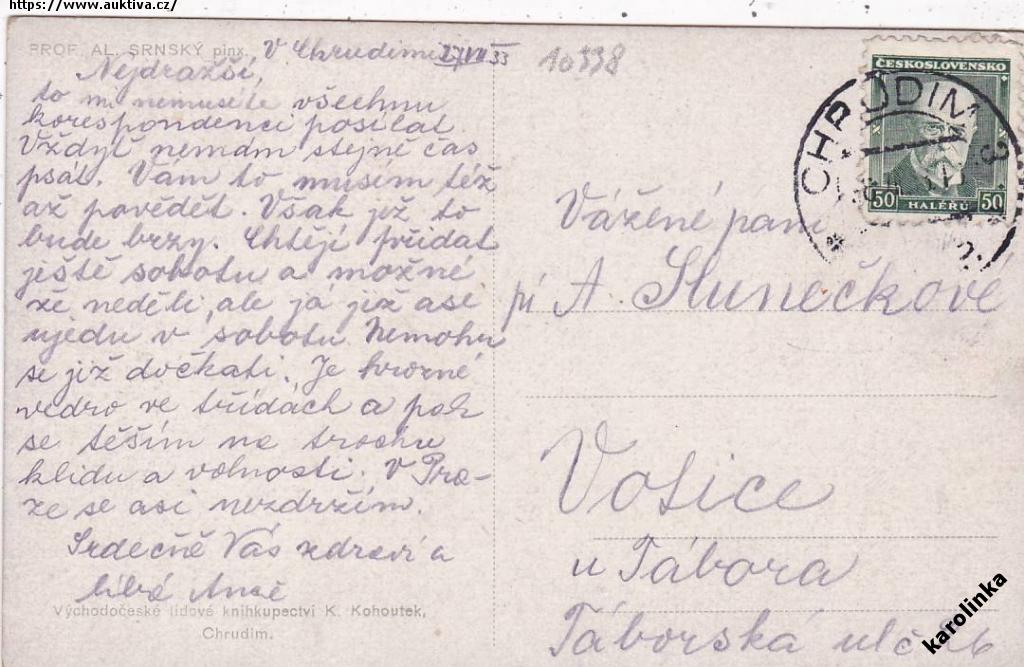 https://www.auktiva.cz/
PROF. AL. SRNSKÝ pinx.
V Chrudimi 27/VI 33
10338
Nejdražší,
to mi nemusíte všechnu
korespondenci posílat.
Vždyť nemám stejně čas
psát. Vám to musím též
až povědět. Však již to
bude brzy. Chtějí přidat
ještě sobotu a možné
že neděli, ale já již asi
ujedu v sobotu. Nemohu
se již dočkati. Je hrozné
vedro ve třídách a pak
se těším na trochu
klidu a volnosti. V Pra-
ze se asi nezdržím.
Srdečně Vás zdraví a
líbá
Východočeské lidové knihkupectví K. Kohoutek,
Chrudim.
ČESKOSLOVENSKO
50 HALÉŘŮ 50
CHRUDIM 3
Vážené paní
pí A. Slunečkové
Votice
u Tábora
Táborská ulč
karolinka